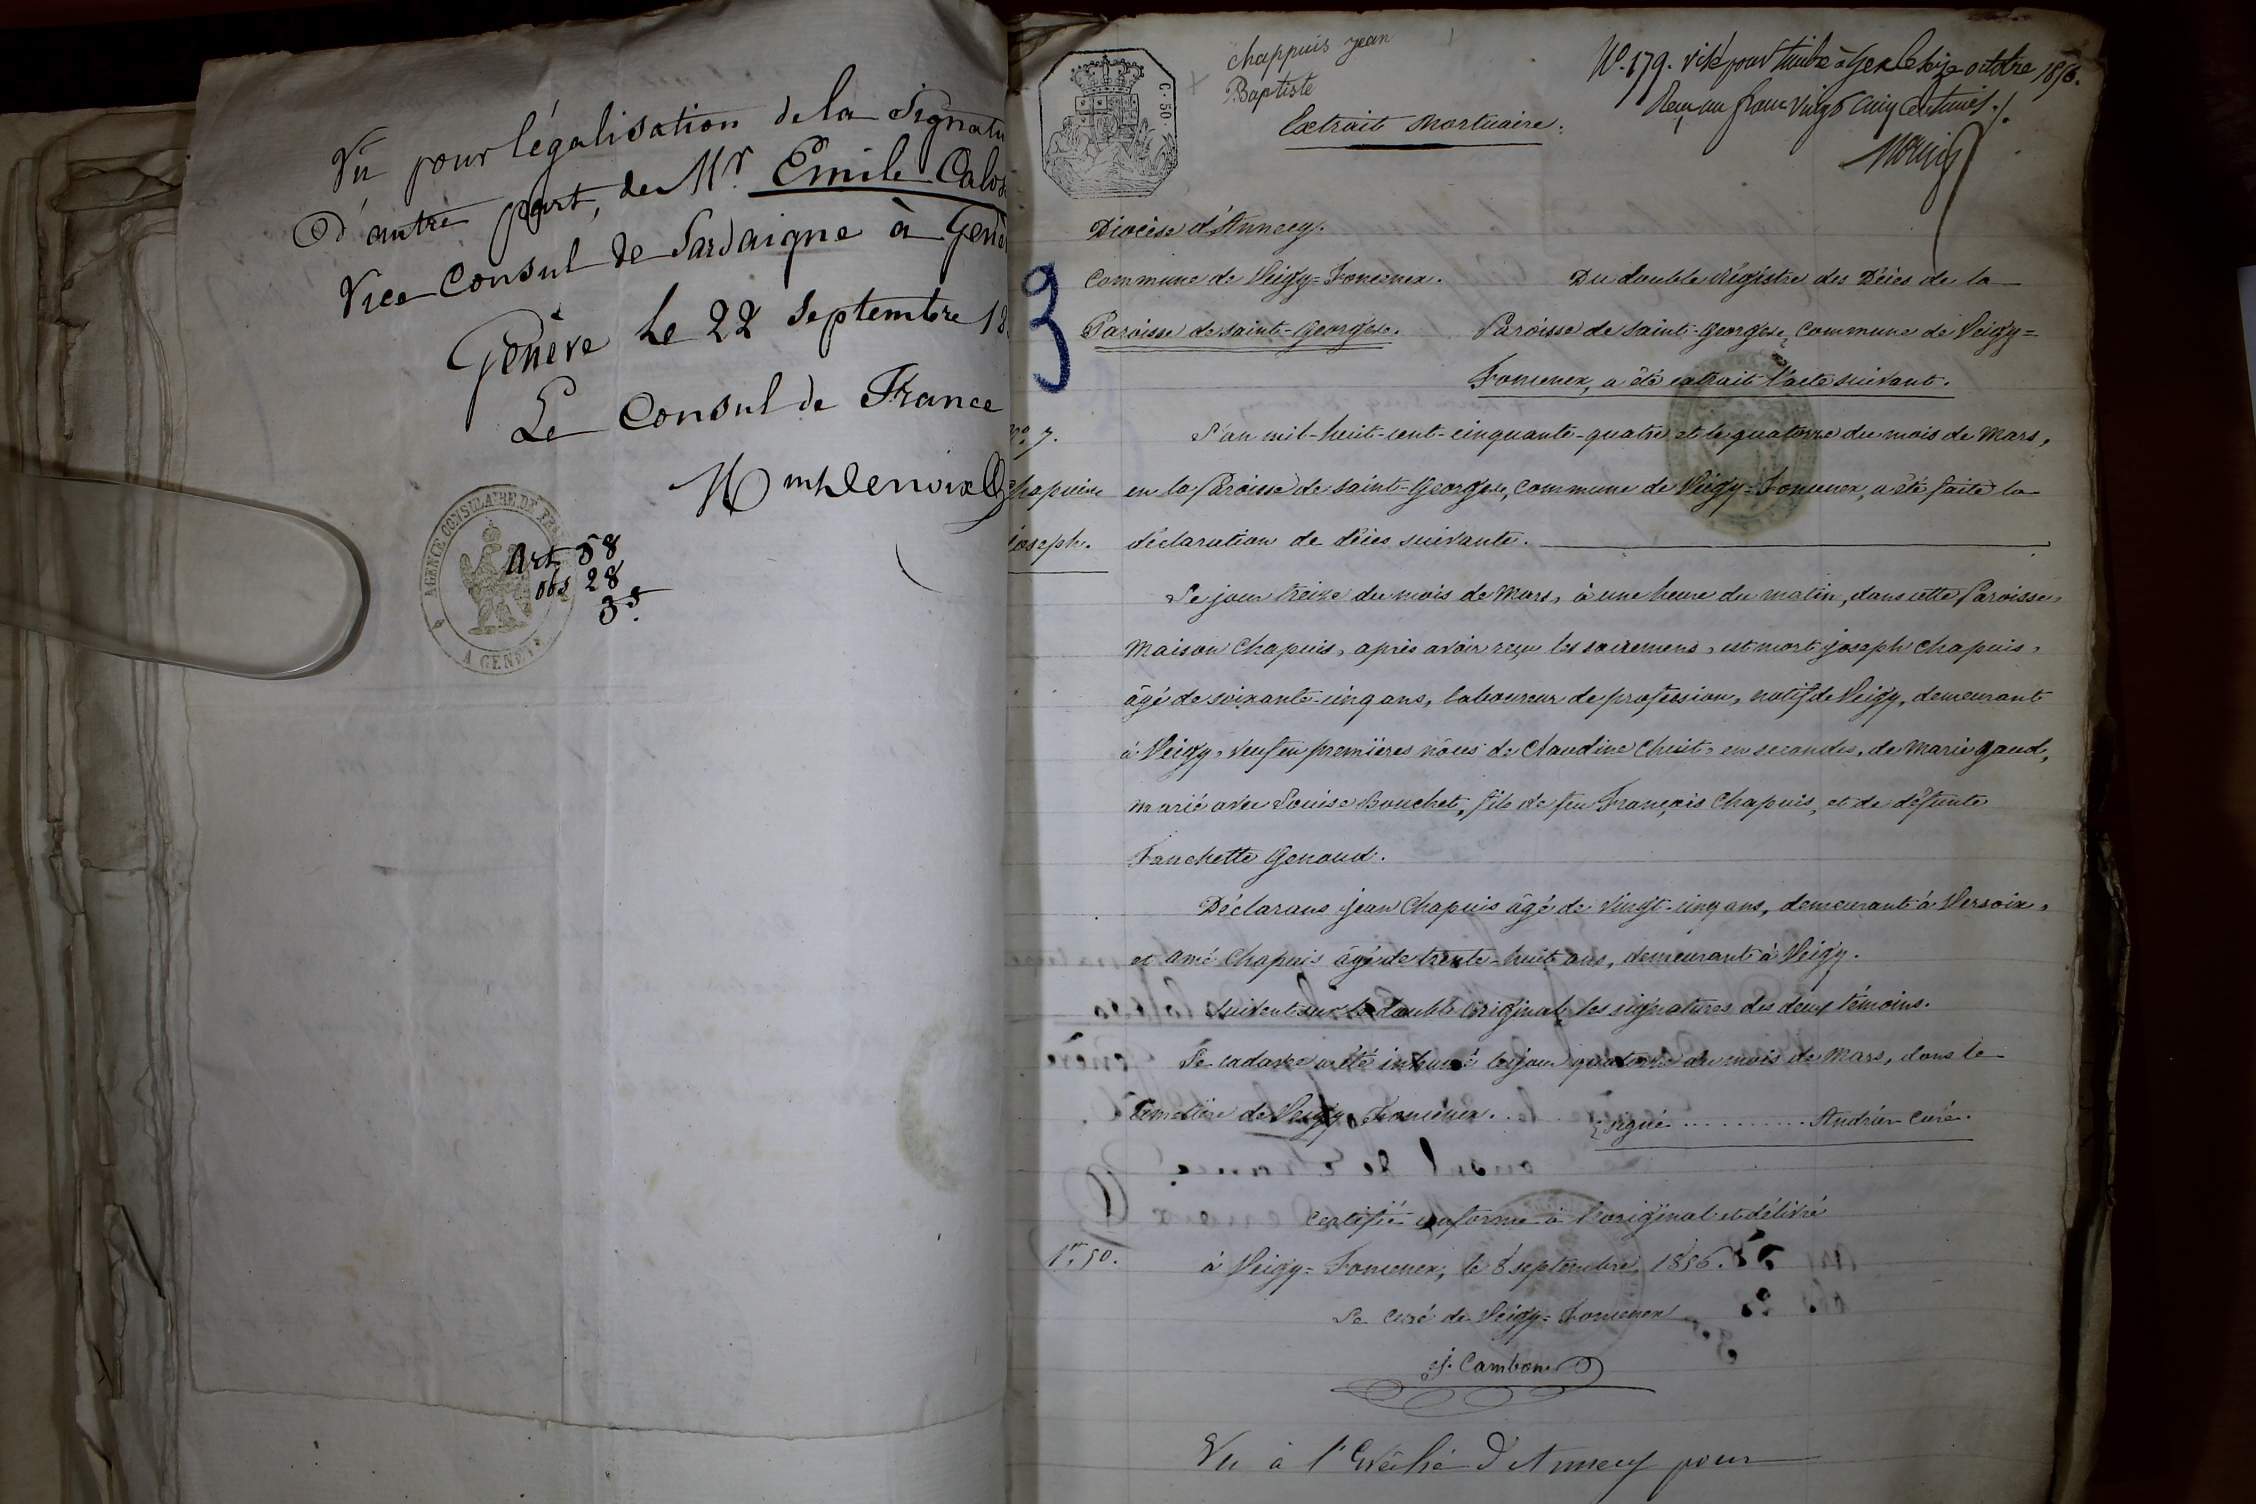 Vû pour légalisation de la Signatu
D'autre part, de Mr. Emile Calos
Vice Consul de Sardaigne à Genè
Genève le 22 Septembre 18
Le Consul de France
AGENCE CONSULAIRE DE FRA
A GENEVE
Art. 58
obs 28
35.
C. 50.
Chappuis Jean
Baptiste
Extrait Mortuaire.
No. 179. visé pour timbre à Gex le seize octobre 1856.
Reçu un franc vingt cinq centimes./.
Diocèse d'Annecy.
Commune de Veigy=Foncenex.
Paroisse de saint-Georges.
3
Du double Régistre des Décès de la
Paroisse de saint-Georges, Commune de Veigy=
Foncenex, a été extrait l'acte suivant.
No. 7.
Chapuis
joseph.
L'an mil-huit-cent-cinquante-quatre et le quatorze du mois de Mars,
en la Paroisse de saint-Georges, Commune de Veigy=Foncenex, a été faite la
déclaration de décès suivante.
Le jour treize du mois de Mars, à une heure du matin, dans cette Paroisse,
Maison Chapuis, après avoir reçu les sacremens, est mort joseph Chapuis,
âgé de soixante-cinq ans, laboureur de profession, natif de Veigy, demeurant
à Veigy, veuf en premières nôces de Claudine Christ, en secondes, de Marie gaud,
marié avec Louise Bouchet, fils de feu François Chapuis, et de défunte
Fanchette Genoud.
Déclarans jean Chapuis âgé de vingt-cinq ans, demeurant à Versoix,
et amé Chapuis âgé de trente-huit ans, demeurant à Veigy.
Suivent sur le double original, les signatures des deux témoins.
Le cadavre a été inhumé le jour quatorze du mois de Mars, dans le
Cimetière de Veigy Foncenex.
signé .......... Andrier curé.
Certifié conforme à l'original et délivré
1f. 50.
à Veigy=Foncenex, le 8 septembre 1856.
Le curé de Veigy=Foncenex
J. Cambon
Vu à l'Evêché d'Annecy pour